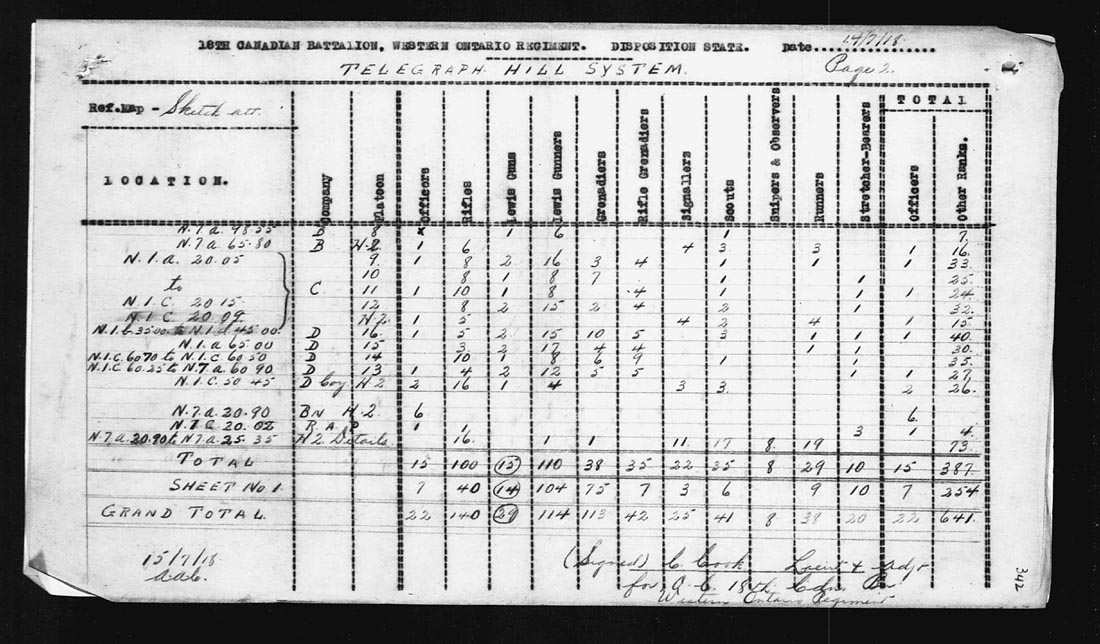 18TH CANADIAN BATTALION, WESTERN ONTARIO REGIMENT. DISPOSITION STATE. Date 14/7/18
TELEGRAPH HILL SYSTEM. Page 2.
Ref.Map - Sketch att.
TOTAL
LOCATION. Company Platoon Officers Rifles Lewis Guns Lewis Gunners Grenadiers Rifle Grenadiers Signallers Scouts Snipers & Observers Runners Stretcher-Bearers Officers Other Ranks.
N.7.a. 98.55 B 8 1 6 1 7
N.7.a. 65.80 B H.2 1 6 4 3 3 1 16
N.1.a. 20.05 9. 1 8 2 16 3 4 1 1 1 33
10 8 1 8 7 1 1 25
to C 11 1 10 1 8 4 1 1 24
N.1.C. 20 15 12 8 2 15 2 4 2 1 32
N.1.C. 20 09. H2. 1 5 4 2 4 1 15
N.1.c.3500 to N.1.d 45 00. D 16. 1 5 2 15 10 5 3 1 1 1 40
N.1.a 65.00 D 15 3 2 17 4 4 1 1 30
N.1.C. 6070 to N.1.C. 60 50 D 14 10 1 8 6 9 1 1 35
N.1.C. 60.25 to N.7.a 60 90 D 13 1 4 2 12 5 5 1 1 27
N.1.C. 50 45 D Coy H2 2 16 1 4 3 3 2 26
N.7.a. 20.90 Bn H.2. 6 6
N.7.C 20.02 R.A.P 1 1 3 1 4
N.7.a.20.90 to N.7.a.25.35 H2 Details. 16. 1 1 11 17 8 19 73
TOTAL 15 100 15 110 38 35 22 35 8 29 10 15 387
SHEET No 1. 7 40 14 104 75 7 3 6 9 10 7 254
GRAND TOTAL 22 140 29 114 113 42 25 41 8 38 20 22 641
15/7/18
(Signed) C. Cook Lieut & Adjt
for O.C. 18th Cdn. Bn
Western Ontario Regiment
342